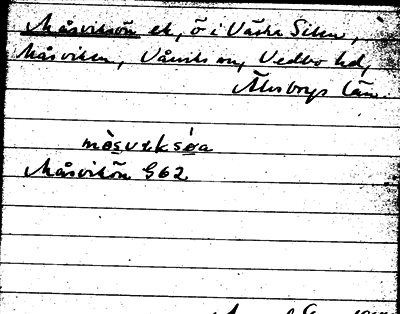 Måsvikön ek, ö i Västra Silen,
Måsviken, Vårviks sn, Vedbo hd,
Älvsborgs län.
Måsvikön G62